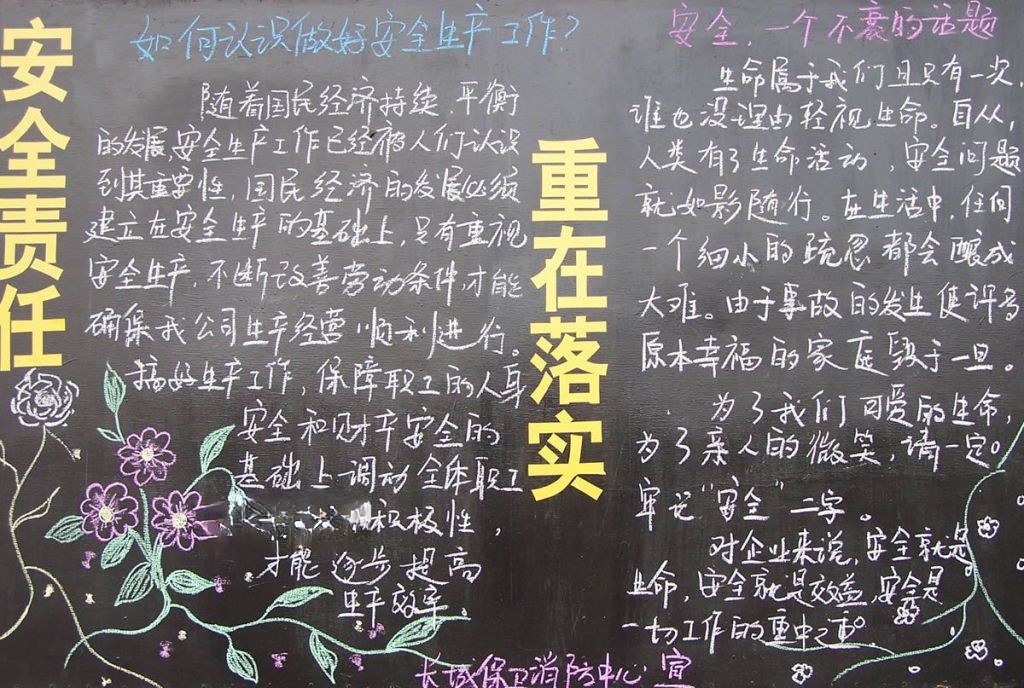 安全责任
如何认识做好安全生产工作?
随着国民经济持续.平衡
的发展,安全生产工作已经被人们认识
到其重要性,国民经济的发展必须
建立在安全生产的基础上,只有重视
安全生产,不断改善劳动条件,才能
确保我公司生产经营顺利进行。
搞好生产工作,保障职工的人身
安全和财产安全的
基础上调动全体职工
积极性,
才能逐步提高
生产效率.
重在落实
安全,一个不衰的话题
生命属于我们且只有一次,
谁也没理由轻视生命。自从,
人类有了生命活动,安全问题
就如影随行。在生活中,任何
一个细小的疏忽都会酿成
大难。由于事故的发生使许多
原本幸福的家庭毁于一旦。
为了我们可爱的生命,
为了亲人的微笑,请一定。
牢记“安全”二字。
对企业来说,安全就是
生命,安全就是效益,安全是
一切工作的重中之重。
长城保卫消防中心 宣